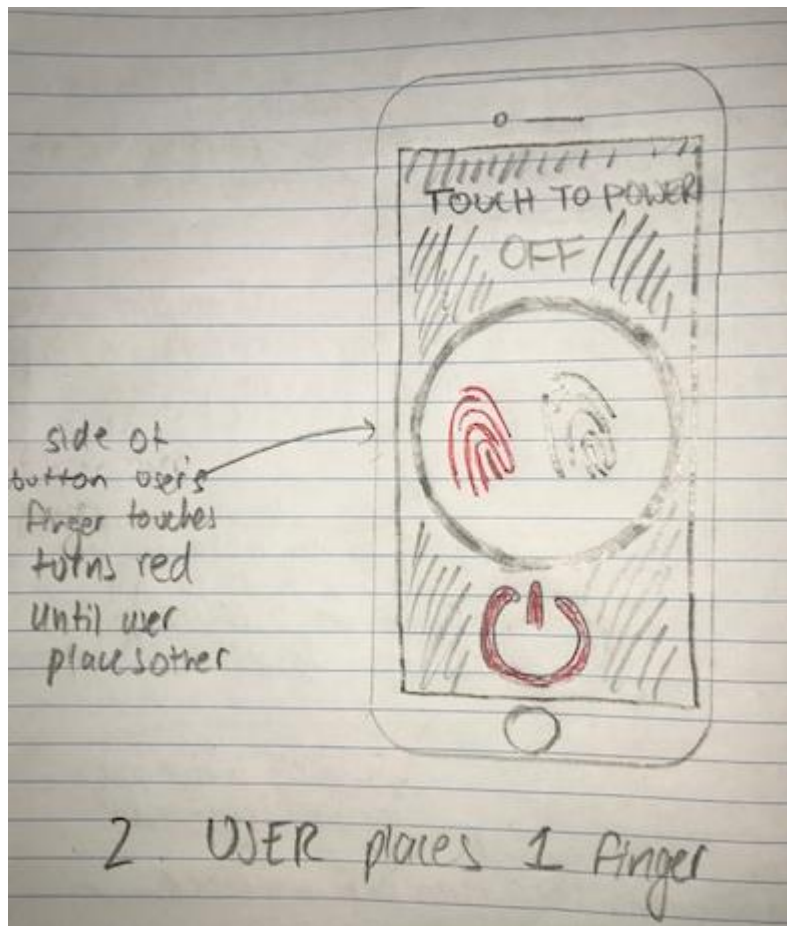 TOUCH TO POWER
OFF
side of
button user's
finger touches
turns red
until user
places other
2 USER places 1 finger